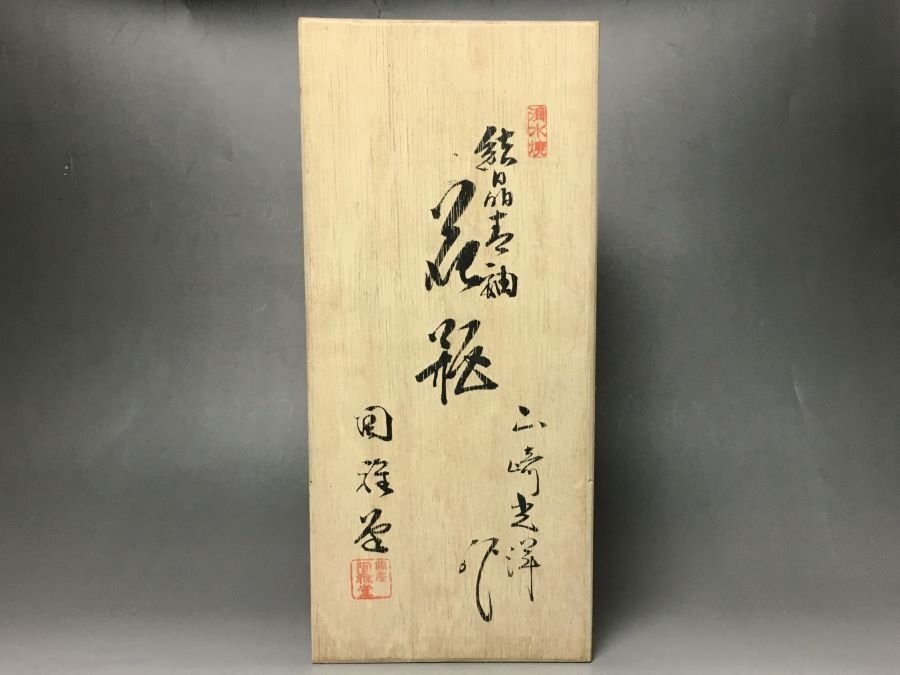 清水焼
結晶青釉
花瓶
山崎光洋
作
陶雅堂
陶雅堂